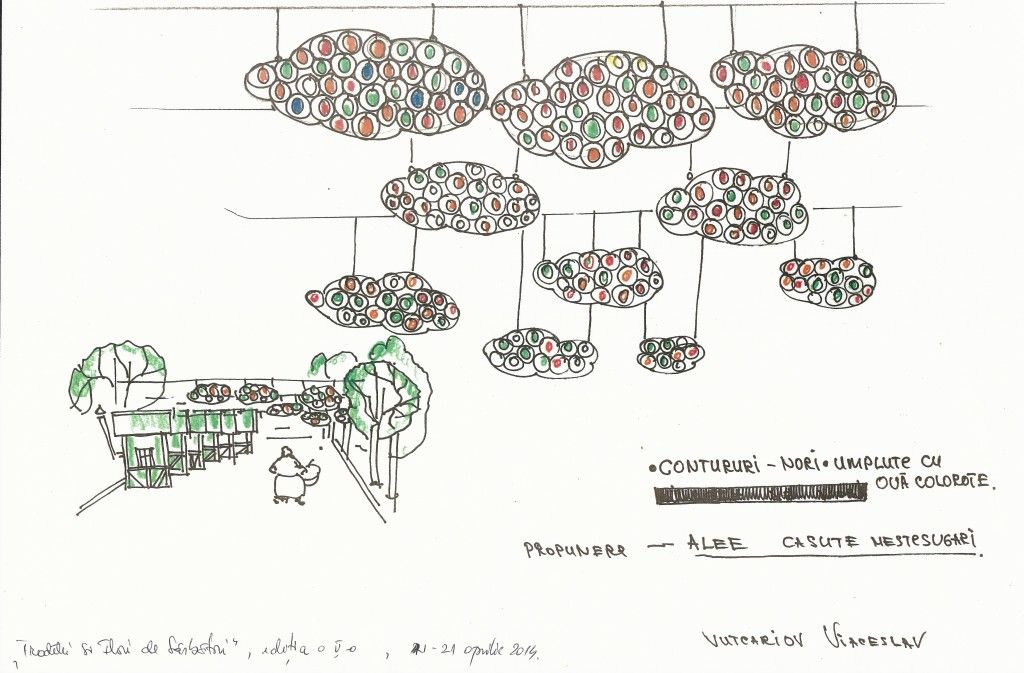 •CONTURURI – NORI • UMPLUTE CU
OUĂ COLORATE.
PROPUNERE — ALEE CASUTE MESTESUGARI.
VUTCARIOV VIACESLAV
"Traditii si Flori de Sărbători", ediția a V-a, - 21 aprilie 2014.